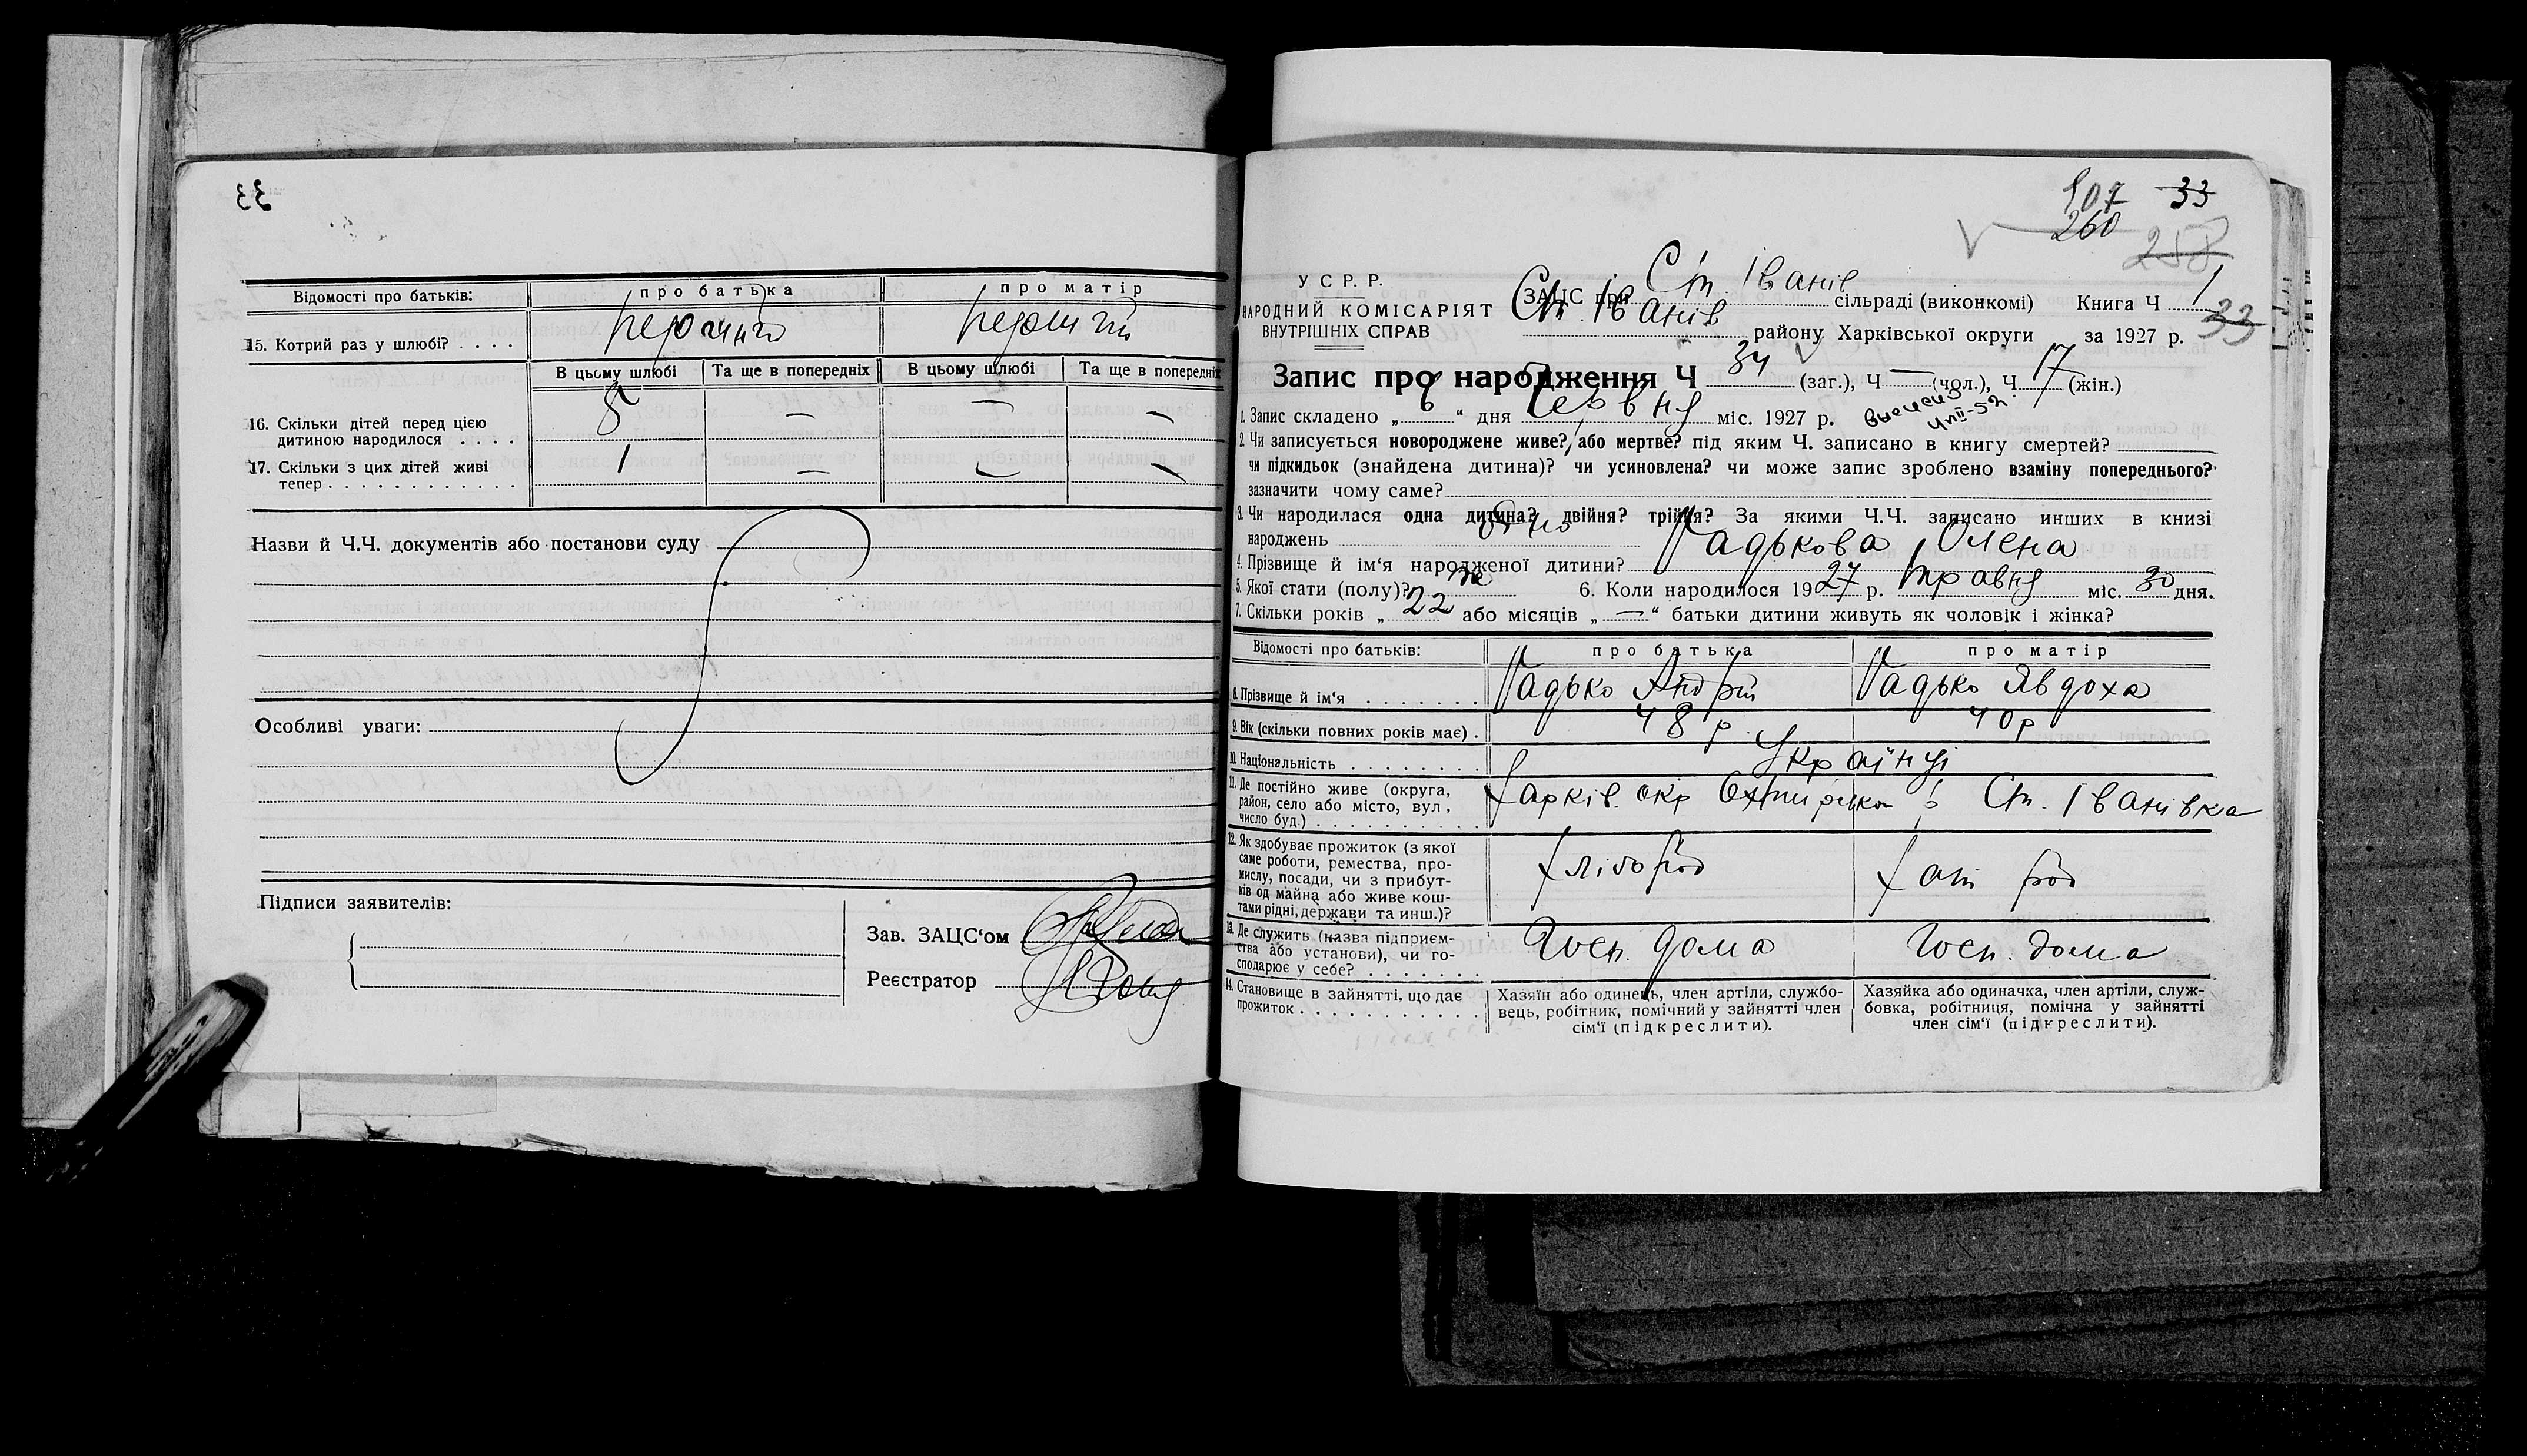 33
Відомості про батьків: про батька про матір
15. Котрий раз у шлюбі? . . . . перший перший
В цьому шлюбі Та ще в попередніх В цьому шлюбі Та ще в попередніх
16. Скільки дітей перед цією дитиною народилося . . . . 5 — — —
17. Скільки з цих дітей живі тепер . . . . . . . . . . . . 1 — — —
Назви й Ч.Ч. документів або постанови суду
Особливі уваги:
Підписи заявителів:
Зав. ЗАЦС‘ом
Реєстратор
107 33
260
258
У С Р. Р.
НАРОДНИЙ КОМІСАРІЯТ
ВНУТРІШНІХ СПРАВ
ЗАЦС при Ст. Іванів сільраді (виконкомі) Книга Ч 1
Ст. Іванів району Харківської округи за 1927 р. 33
Запис про народження Ч 34 (заг.), Ч — (чол.), Ч 17 (жін.)
1. Запис складено „ 6 “ дня Червня міс. 1927 р.
2. Чи записується новороджене живе? або мертве? під яким Ч. записано в книгу смертей?
чи підкидьок (знайдена дитина)? чи усиновлена? чи може запис зроблено взаміну попереднього?
зазначити чому саме?
3. Чи народилася одна дитина? двійня? трійня? За якими Ч.Ч. записано инших в книзі
народжень одно
4. Прізвище й ім‘я народженої дитини? Гадькова Олена
5. Якої стати (полу)? же 6. Коли народилося 1927 р. травня міс. 30 дня.
7. Скільки років „ 22 або місяців „ — “ батьки дитини живуть як чоловік і жінка?
Відомості про батьків: про батька про матір
8. Прізвище й ім‘я . . . . . . . Гадько Андрій Гадько Явдоха
9. Вік (скільки повних років має) . 48 р. 40 р
10. Національність . . . . . . . . Українці
11. Де постійно живе (округа, район, село або місто, вул, число буд.) . . . . . . . . . . Харків. окр Ст. Іванівка
12. Як здобуває прожиток (з якої саме роботи, ремества, промислу, посади, чи з прибутків од майна або живе коштами рідні, держави та инш.)? хлібороб хат роб
13. Де служить (назва підприємства або установи), чи господарює у себе? . . . . . . . Госп. дома Госп. дома
14. Становище в зайнятті, що дає прожиток . . . . . . . . . . . Хазяїн або одинець, член артіли, службовець, робітник, помічний у зайнятті член сім‘ї (підкреслити). Хазяйка або одиначка, член артіли, службовка, робітниця, помічна у зайнятті член сім‘ї (підкреслити).